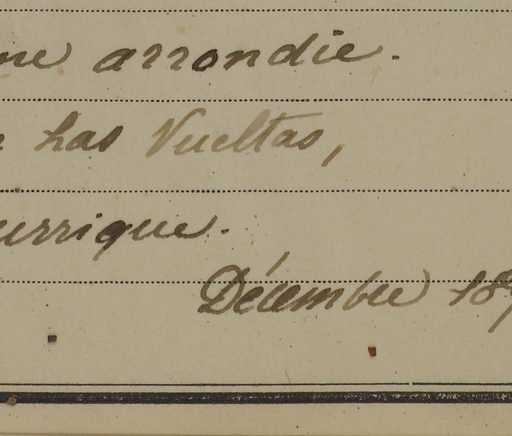 ne arrondie.
Las Vueltas,
urrique.
Décembre 189